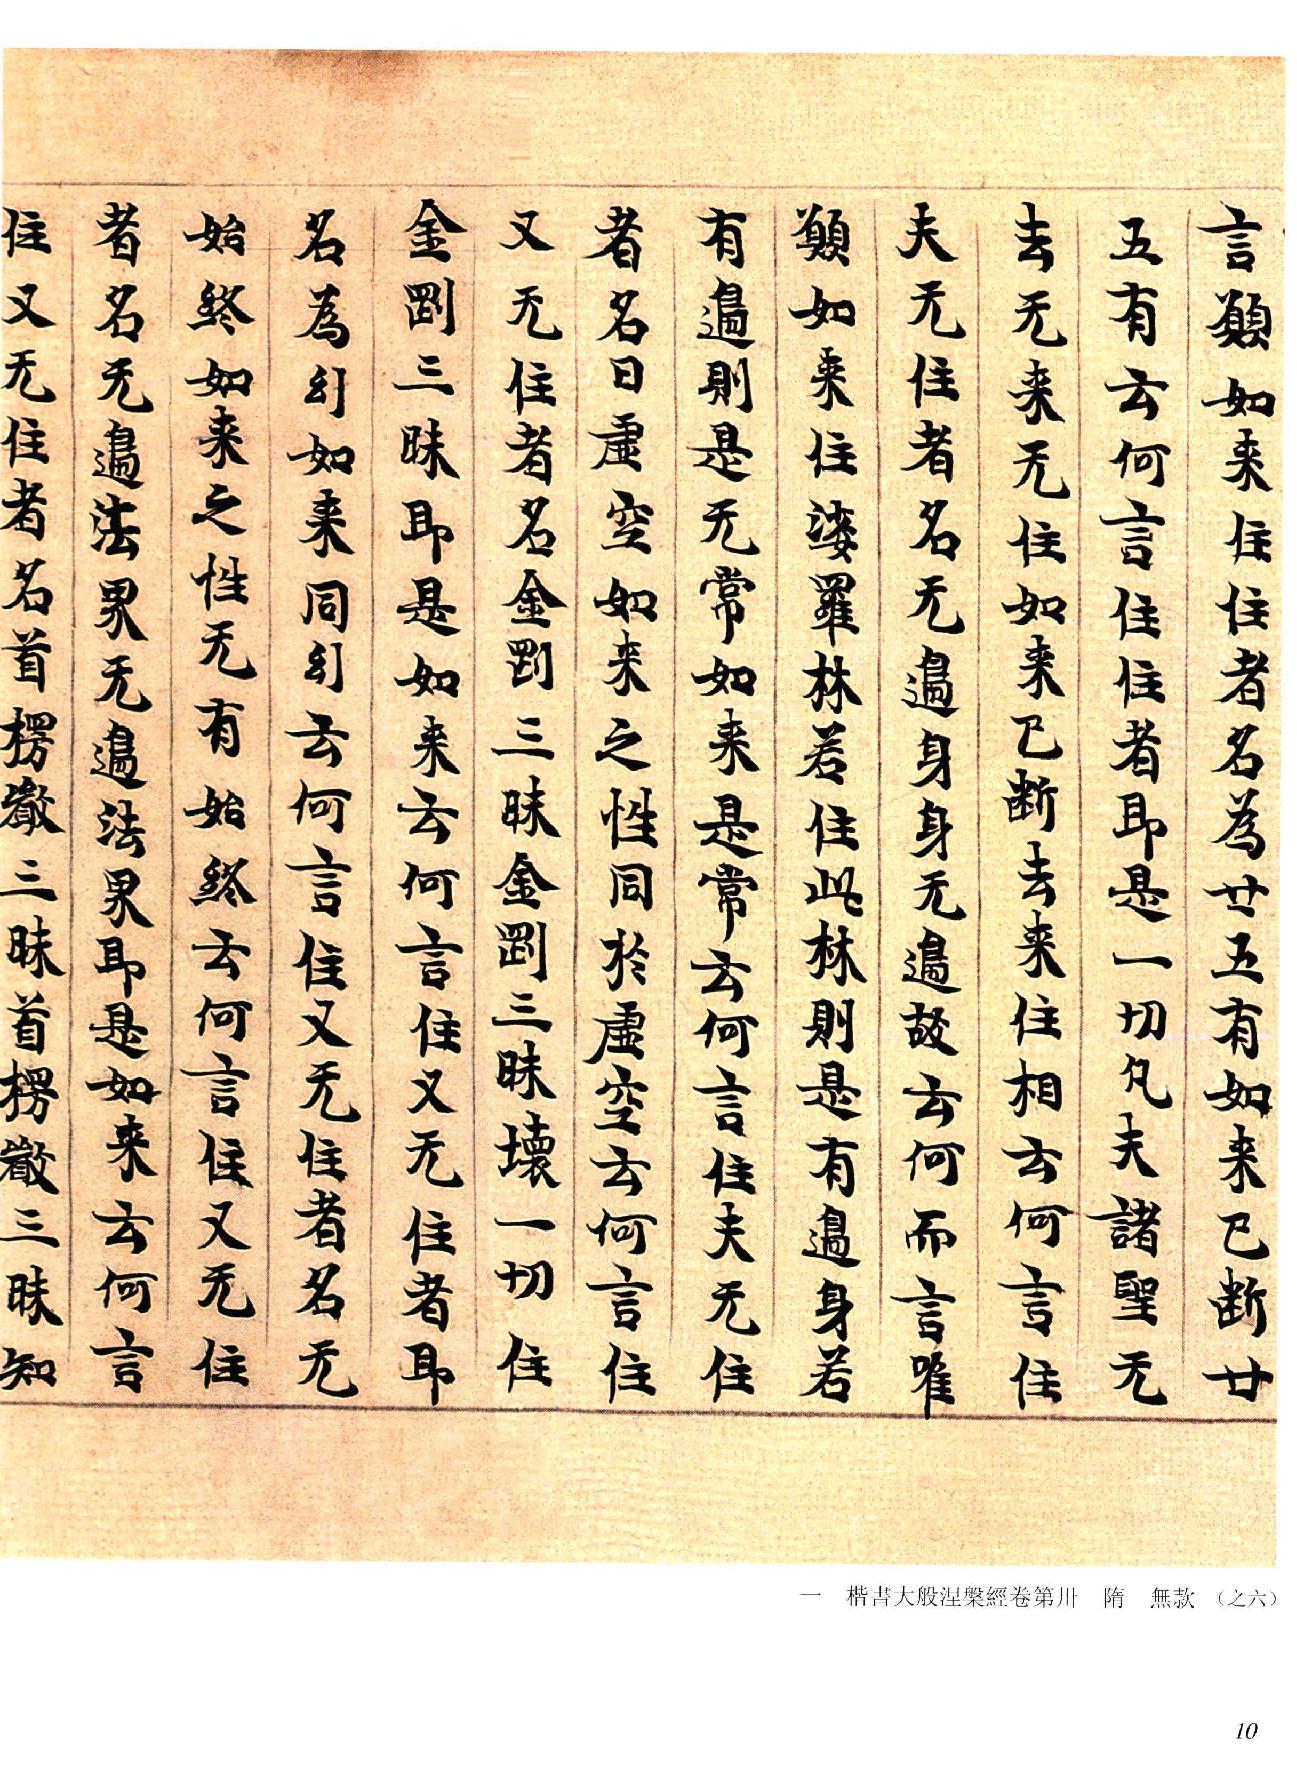 言願如来住住者名為廿五有如来已断廿
五有云何言住住者即是一切凡夫諸聖无
去无来无住如来已断去来住相云何言住
夫无住者名无邊身身无邊故云何而言唯
願如来住娑羅林若住此林則是有邊身若
有邊則是无常如来是常云何言住夫无住
者名曰虚空如来之性同於虚空云何言住
又无住者名金剛三昧金剛三昧壊一切住
金剛三昧即是如来云何言住又无住者即
名為幻如来同幻云何言住又无住者名无
始終如来之性无有始終云何言住又无住
者名无邊法界无邊法界即是如来云何言
住又无住者名首楞嚴三昧首楞嚴三昧知
一 楷書大般涅槃經卷第卅 隋 無款 （之六）
10